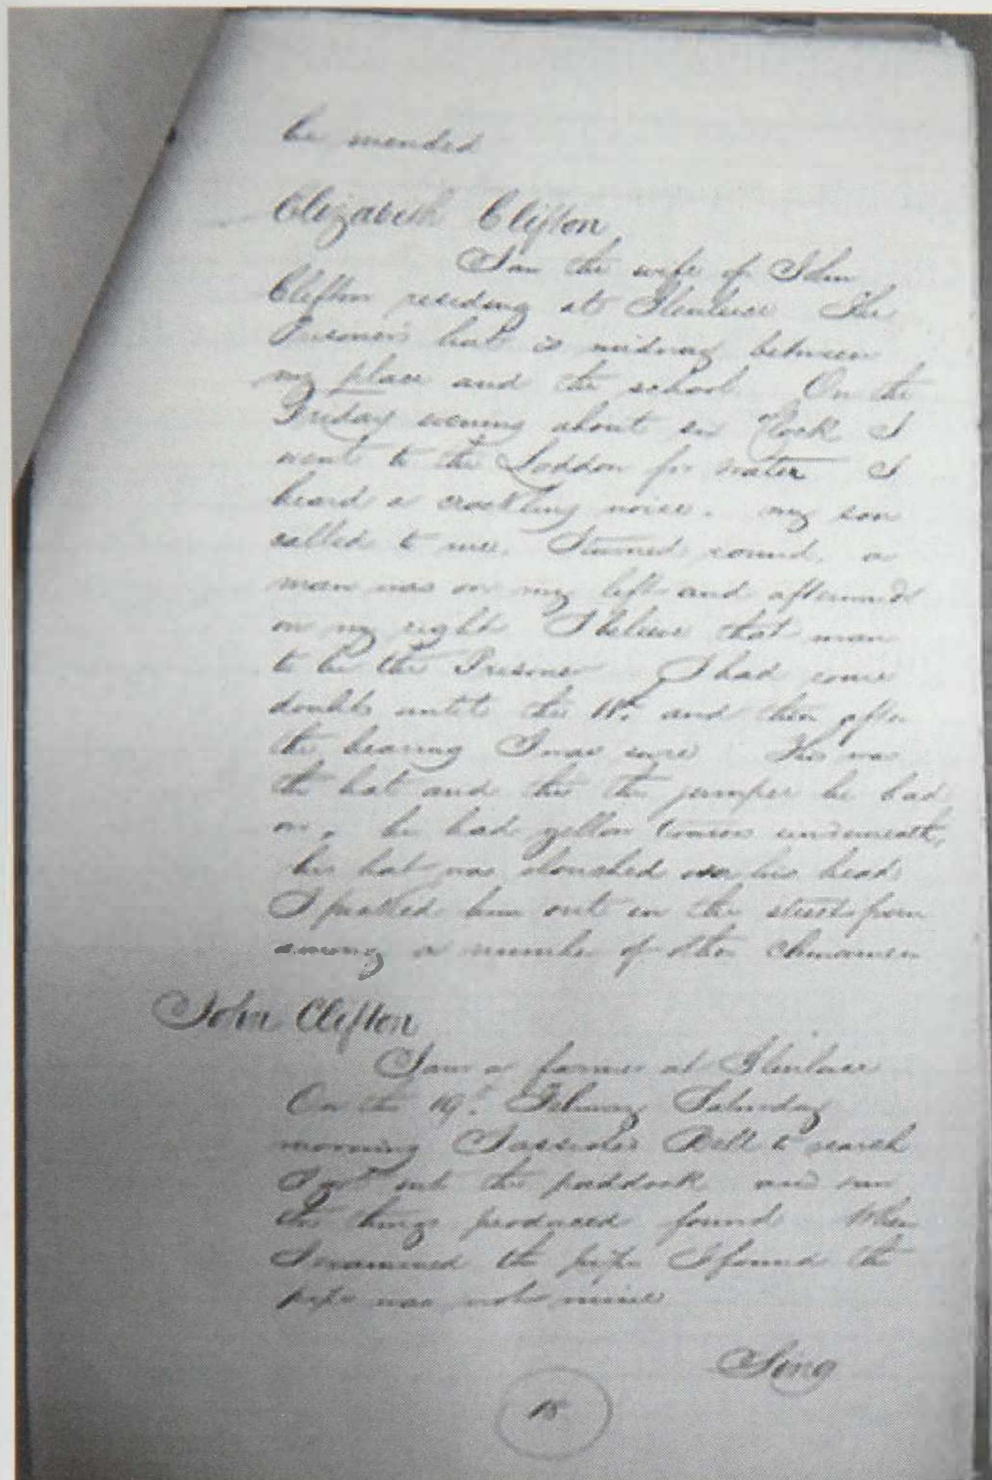 be mended
Elizabeth Clifton
I am the wife of John
Clifton residing at Glenluce The
Prisoners hut is midway between
my place and the school. On the
Friday evening about six Clock I
went to the Loddon for water I
heard a crackling noise. my son
called to me. I turned round. a
man was on my left and afterwards
on my right I believe that man
to be the Prisoner I had some
doubts until the 11th and then after
the hearing I was sure This was
the hat and this the jumper he had
on. he had yellow trousers underneath,
his hat was slouched over his head
I pulled him out in the street from
among a number of other Chinamen
John Clifton
I am a farmer at Glenluce
On the 19th February Saturday
morning I assisted Bell to search
I got into the paddock and saw
the things produced found When
I examined the pipe I found the
pipe was not mine
Sing
15